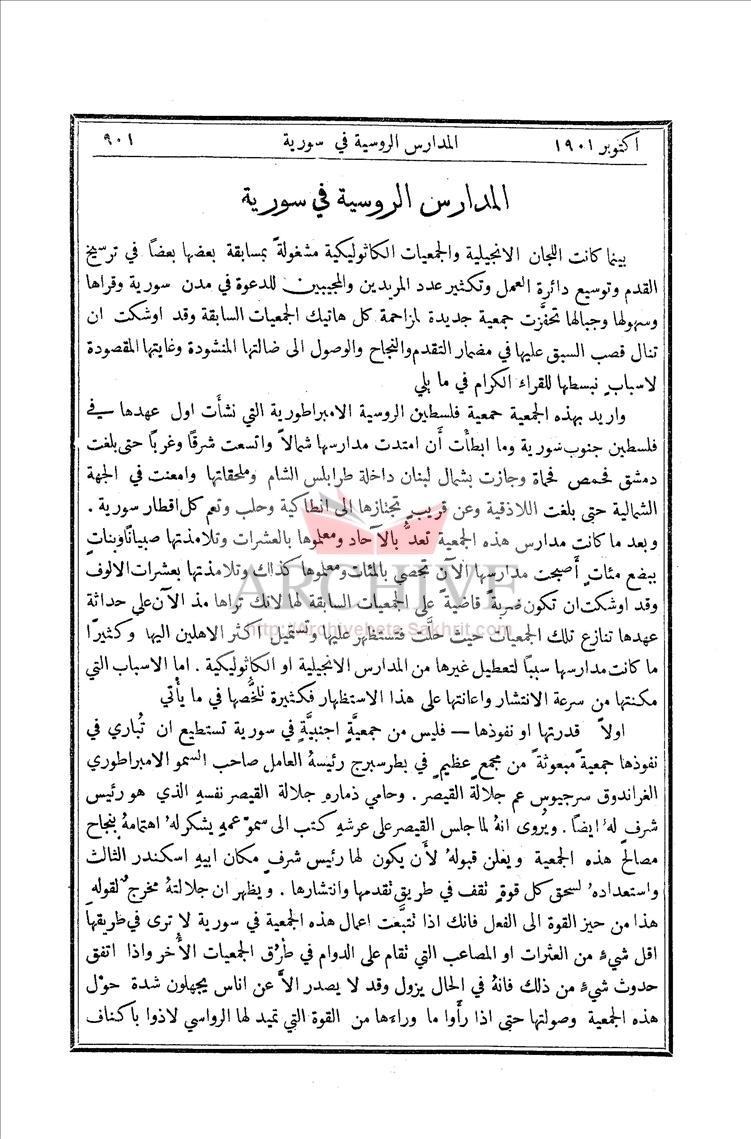 اكتوبر ١٩٠١ المدارس الروسية في سورية ٩٠١
المدارس الروسية في سورية
بينما كانت اللجان الانجيلية والجمعيات الكاثوليكية مشغولةً بمسابقة بعضها بعضًا في ترسيخ
القدم وتوسيع دائرة العمل وتكثير عدد المريدين والمجيبين للدعوة في مدن سورية وقراها
وسهولها وجبالها تحفَّزت جمعية جديدة لمزاحمة كل هاتيك الجمعيات السابقة وقد اوشكت ان
تنال قصب السبق عليها في مضمار التقدم والنجاح والوصول الى ضالتها المنشودة وغايتها المقصودة
لاسبابٍ نبسطها للقراء الكرام في ما يلي
واريد بهذه الجمعية جمعية فلسطين الروسية الامبراطورية التي نشأت اول عهدها في
فلسطين جنوب سورية وما ابطأت أن امتدت مدارسها شمالاً واتسعت شرقًا وغربًا حتى بلغت
دمشق فحمص فحماة وجازت بشمال لبنان داخلة طرابلس الشام وملحقاتها وامعنت في الجهة
الشمالية حتى بلغت اللاذقية وعن قريبٍ تجتازها الى انطاكية وحلب وتعم كل اقطار سورية .
وبعد ما كانت مدارس هذه الجمعية تعدُّ بالآحاد ومعلموها بالعشرات وتلامذتها صبيانًا وبناتٍ
ببضع مئاتٍ أصبحت مدارسها الآن تحصى بالمئات ومعلموها كذلك وتلامذتها بعشرات الالوف
وقد اوشكت ان تكون ضربةً قاضيةً على الجمعيات السابقة لها لانك تراها مذ الآن على حداثة
عهدها تنازع تلك الجمعيات حيث حلَّت فتستظهر عليها وتستميل اكثر الاهلين اليها وكثيرًا
ما كانت مدارسها سببًا لتعطيل غيرها من المدارس الانجيلية او الكاثوليكية . اما الاسباب التي
مكنتها من سرعة الانتشار واعانتها على هذا الاستظهار فكثيرة نلخّصها في ما يأتي
اولاً قدرتها او نفوذها — فليس من جمعيَّةٍ اجنبيَّةٍ في سورية تستطيع ان تُباري في
نفوذها جمعيةً مبعوثةً من مجمع عظيمٍ في بطرسبرج رئيسهُ العامل صاحب السمو الامبراطوري
الغراندوق سرجيوس عم جلالة القيصر . وحامي ذماره جلالة القيصر نفسهِ الذي هو رئيس
شرفٍ لهُ ايضًا . ويُروى انهُ لما جلس القيصر على عرشهِ كتب الى سموّ عمهِ يشكر لهُ اهتمامهُ بنجاح
مصالح هذه الجمعية ويعلن قبولهُ لأن يكون لها رئيس شرفٍ مكان ابيهِ اسكندر الثالث
واستعدادهُ لسحق كل قوةٍ تقف في طريق تقدمها وانتشارها . ويظهر ان جلالتهُ مخرجٌ لقولهِ
هذا من حيز القوة الى الفعل فانك اذا تتبَّعت اعمال هذه الجمعية في سورية لا ترى في طريقها
اقل شيءٍ من العثرات او المصاعب التي تقام على الدوام في طرُق الجمعيات الأُخر واذا اتفق
حدوث شيءٍ من ذلك فانهُ في الحال يزول وقد لا يصدر الاَّ عن اناس يجهلون شدة حوْل
هذه الجمعية وصولتها حتى اذا رأَوا ما وراءها من القوة التي تميد لها الرواسي لاذوا باكناف
ARCHIVE
http://Archivebeta.Sakhrit.com